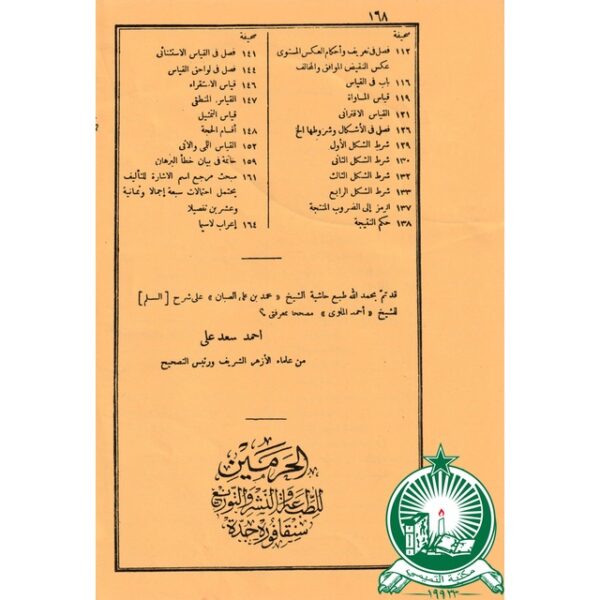 ١٦٨
صحيفة
١١٢ فصل فى تعريف وأحكام العكس المستوى
عكس النقيض الموافق والمخالف
١١٦ باب فى القياس
١١٩ قياس المساواة
١٢١ القياس الاقترانى
١٢٦ فصل فى الأشكال وشروطها الخ
١٢٩ شرط الشكل الأول
١٣٠ شرط الشكل الثانى
١٣٢ شرط الشكل الثالث
١٣٣ شرط الشكل الرابع
١٣٧ الرمز إلى الضروب المنتجة
١٣٨ حكم النتيجة
صحيفة
١٤١ فصل فى القياس الاستثنائى
١٤٤ فصل فى لواحق القياس
١٤٦ قياس الاستقراء
١٤٧ القياس المنطقى
قياس التمثيل
١٤٨ أقسام الحجة
١٥٢ القياس اللمى والآنى
١٥٩ خاتمة فى بيان خطأ البرهان
١٦١ مبحث مرجع اسم الاشارة للتأليف
يحتمل احتمالات سبعة إجمالا وثمانية
وعشرين تفصيلا
١٦٤ إعراب لاسيما
قد تم بحمد الله طبع حاشية الشيخ « محمد بن على الصبان » على شرح [ السلم ]
للشيخ « أحمد الملوى » مصححا بمعرفتى ؟
احمد سعد على
من علماء الأزهر الشريف ورئيس التصحيح
الحرمين
للطباعة والنشر والتوزيع
سنقافورة جدة
مكتبة التميمي